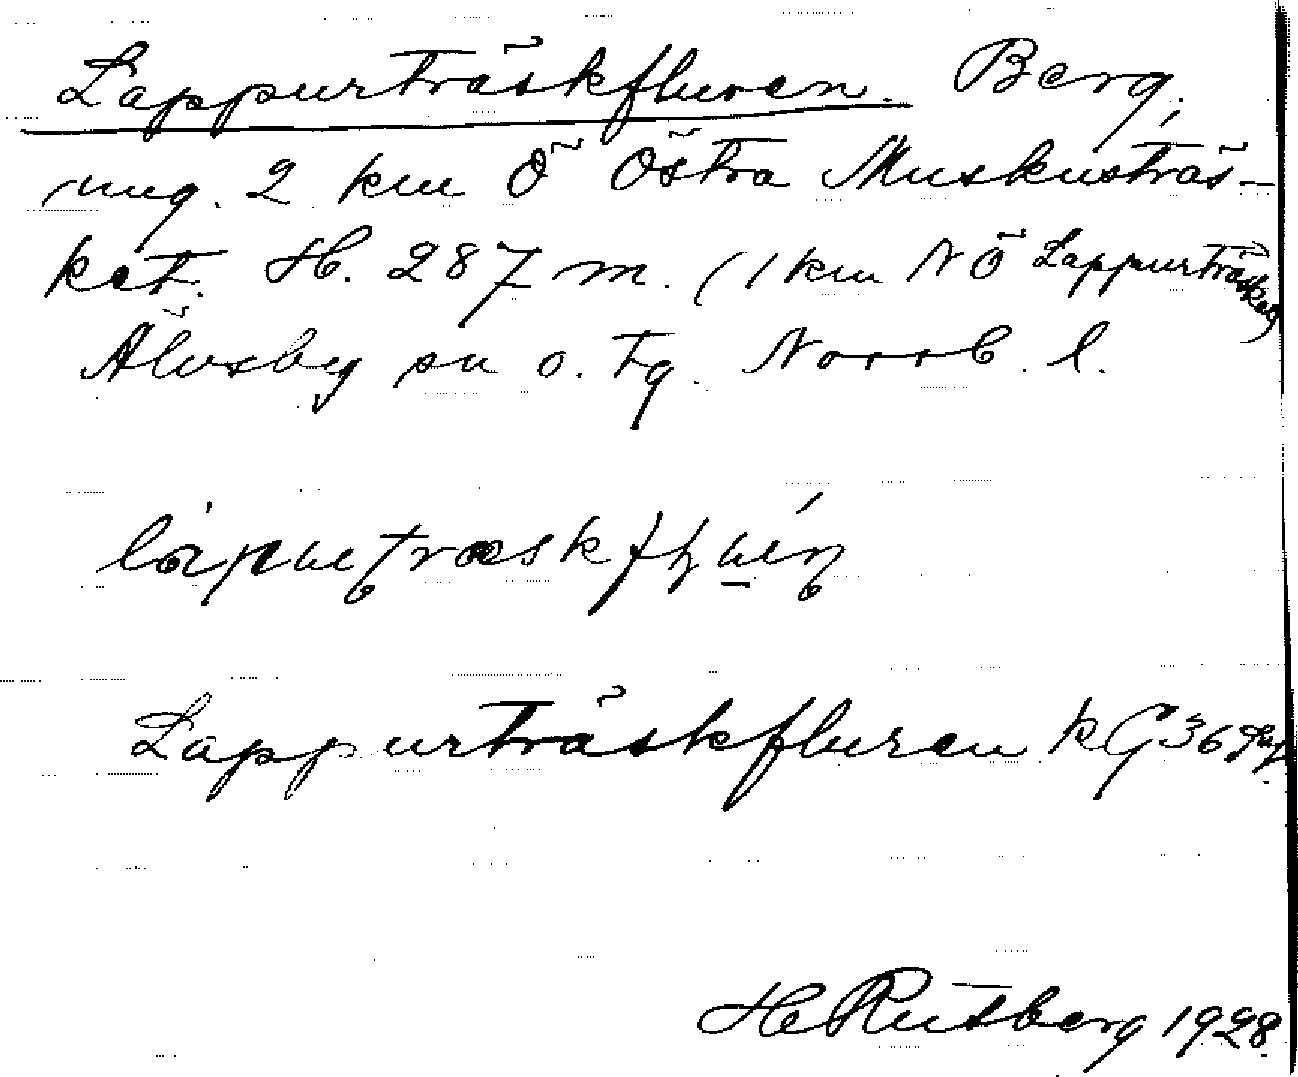 Lappurträskfluren. Berg,
ung. 2 km Ö Östra Muskusträs-
ket. H. 287 m. (1 km NÖ Lappurträsket)
Älvsby sn o. tg. Norrb. l.
Lappurträskfluren k G 36
H Rutberg 1928